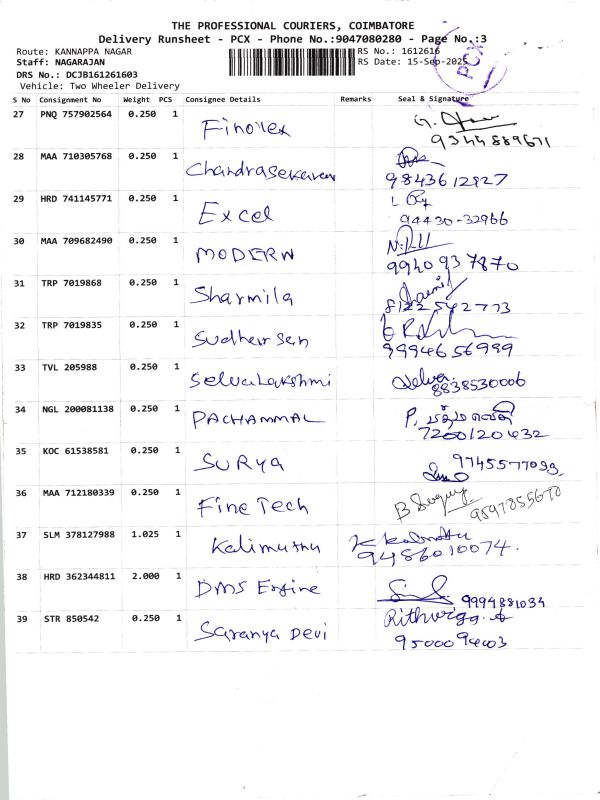 THE PROFESSIONAL COURIERS, COIMBATORE
Delivery Runsheet - PCX - Phone No.:9047080280 - Page No.:3
Route: KANNAPPA NAGAR RS No.: 1612616
Staff: NAGARAJAN RS Date: 15-Sep-2025
DRS No.: DCJB161261603
Vehicle: Two Wheeler Delivery
PCX
S No Consignment No Weight PCS Consignee Details Remarks Seal & Signature
27 PNQ 757902564 0.250 1 Finolex
9344889671
28 MAA 710305768 0.250 1 Chandrasekaran
9843612927
29 HRD 741145771 0.250 1 Excel
94430-32966
30 MAA 709682490 0.250 1 MODERN
9940937870
31 TRP 7019868 0.250 1 Sharmila
8122542773
32 TRP 7019835 0.250 1 Sudharsan
9994656999
33 TVL 205988 0.250 1 Selvalakshmi Selva
8838530006
34 NGL 200081138 0.250 1 PACHAMMAL P.
7200120432
35 KOC 61538581 0.250 1 SURYA
36 MAA 712180339 0.250 1 Fine Tech B
37 SLM 378127988 1.025 1 Kalimuthu
9486010074.
38 HRD 362344811 2.000 1 DMS Engine 9994881034
39 STR 850542 0.250 1 Saranya Devi